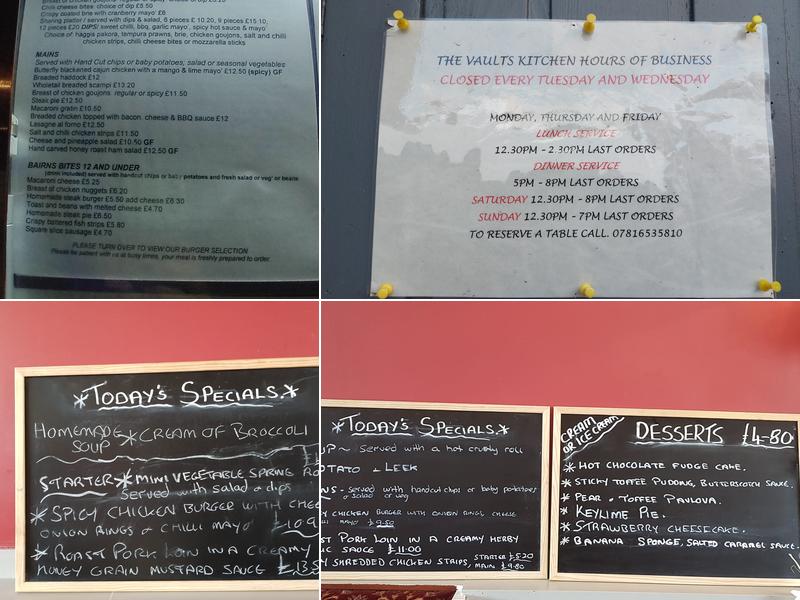 Chilli cheese bites choice of dip £5.50
Crispy coated brie with cranberry mayo' £6
Sharing platter / served with dips & salad, 6 pieces £ 10.20, 9 pieces £15.10,
12 pieces £20 DIPS/ sweet chilli, bbq, garlic mayo', spicy hot sauce & mayo'
Choice of haggis pakora, tempura prawns, brie, chicken goujons, salt and chilli
chicken strips, chilli cheese bites or mozzarella sticks
MAINS
Served with Hand Cut chips or baby potatoes; salad or seasonal vegetables
Butterfly blackened cajun chicken with a mango & lime mayo' £12.50 (spicy) GF
Breaded haddock £12
Wholetail breaded scampi £13.20
Breast of chicken goujons regular or spicy £11.50
Steak pie £12.50
Macaroni gratin £10.50
Breaded chicken topped with bacon, cheese & BBQ sauce £12
Lasagne al forno £12.50
Salt and chilli chicken strips £11.50
Cheese and pineapple salad £10.50 GF
Hand carved honey roast ham salad £12.50 GF
BAIRNS BITES 12 AND UNDER
(drink included) served with handcut chips or baby potatoes and fresh salad or veg' or beans
Macaroni cheese £5.25
Breast of chicken nuggets £6.20
Homemade steak burger £5.50 add cheese £6.30
Toast and beans with melted cheese £4.70
Homemade steak pie £6.50
Crispy battered fish strips £5.80
Square slice sausage £4.70
PLEASE TURN OVER TO VIEW OUR BURGER SELECTION
Please be patient with us at busy times, your meal is freshly prepared to order.
THE VAULTS KITCHEN HOURS OF BUSINESS
CLOSED EVERY TUESDAY AND WEDNESDAY
MONDAY, THURSDAY AND FRIDAY
LUNCH SERVICE
12.30PM - 2.30PM LAST ORDERS
DINNER SERVICE
5PM - 8PM LAST ORDERS
SATURDAY 12.30PM - 8PM LAST ORDERS
SUNDAY 12.30PM - 7PM LAST ORDERS
TO RESERVE A TABLE CALL. 07816535810
*TODAY'S SPECIALS.*
HOMEMADE * CREAM OF BROCCOLI
SOUP
STARTER * MINI VEGETABLE SPRING RO
Served with salad & dips
* SPICY CHICKEN BURGER WITH CHEE
ONION RINGS & CHILLI MAYO' £10.9
* ROAST PORK LOIN IN A CREAMY
HONEY GRAIN MUSTARD SAUCE £13.5
*TODAY'S SPECIALS.*
UP ~ Served with a hot crusty roll
OTATO & LEEK
NS - Served with handcut chips or baby potatoes
& salad or veg
Y CHICKEN BURGER WITH ONION RINGS, CHEESE
LLI MAYO £9.50
ST PORK LOIN IN A CREAMY HERBY
IC SAUCE £11.00
Y SHREDDED CHICKEN STRIPS, STARTER £5.20
MAIN £9.80
CREAM
OR ICE CREAM
DESSERTS £4.80
* HOT CHOCOLATE FUDGE CAKE.
* STICKY TOFFEE PUDDING, BUTTERSCOTCH SAUCE.
* PEAR & TOFFEE PAVLOVA.
* KEYLIME PIE.
* STRAWBERRY CHEESECAKE.
* BANANA SPONGE, SALTED CARAMEL SAUCE.